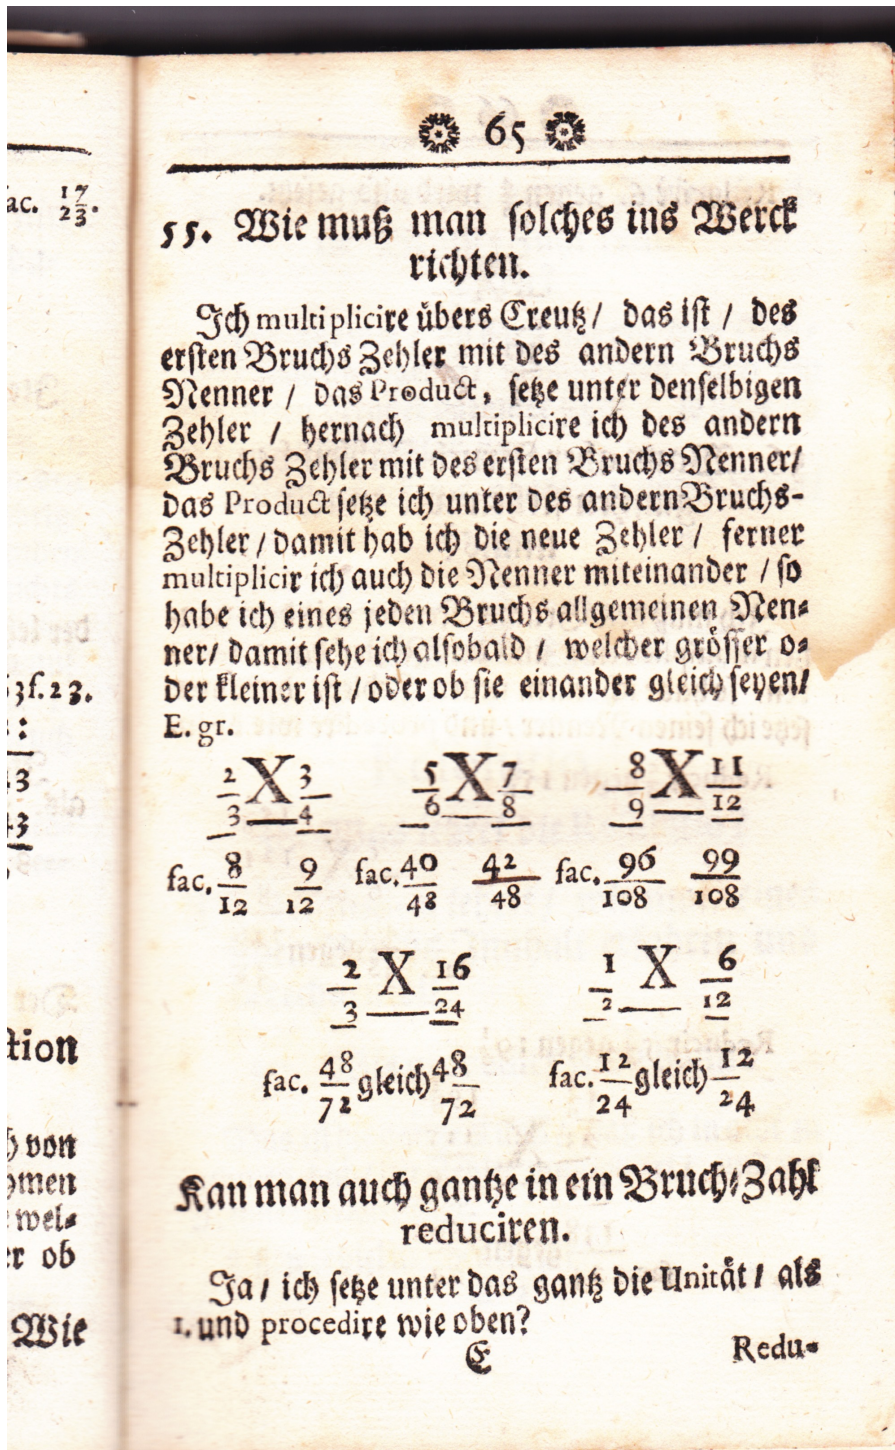 65
55. Wie muß man solches ins Werck
richten.
Ich multiplicire übers Creutz/ das ist / des
ersten Bruchs Zehler mit des andern Bruchs
Nenner / das Product, setze unter denselbigen
Zehler / hernach multiplicire ich des andern
Bruchs Zehler mit des ersten Bruchs Nenner/
das Product setze ich unter des andern Bruchs-
Zehler / damit hab ich die neue Zehler / ferner
multiplicir ich auch die Nenner miteinander / so
habe ich eines jeden Bruchs allgemeinen Nen-
ner/ damit sehe ich alsobald / welcher grösser o-
der kleiner ist / oder ob sie einander gleich seyen/
E. gr.
2/3 X 3/4 5/6 X 7/8 8/9 X 11/12
fac. 8/12 9/12 fac. 40/48 42/48 fac. 96/108 99/108
2/3 X 16/24 1/2 X 6/12
fac. 48/72 gleich 48/72 fac. 12/24 gleich 12/24
Kan man auch gantze in ein Bruch-Zahl
reduciren.
Ja / ich setze unter das gantz die Unität / als
1. und procedire wie oben?
E Redu-
ac. 17/23.
s. 23.
13
tion
von
wel-
er ob
Wie